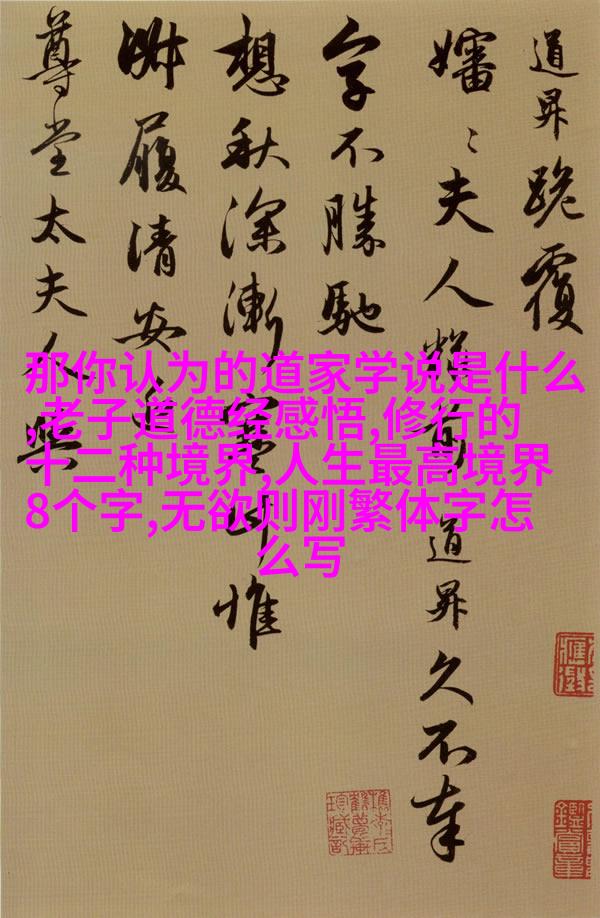 道昇跪覆
嬸〻夫人粧前道昇久不奉
字不勝馳
想秋深漸寒計惟
淑履清安近
尊堂太夫人與
那你认为的道家学说是什么
,老子道德经感悟,修行的
十二种境界,人生最高境界
8个字,无欲则刚繁体字怎
么写